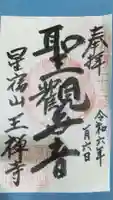 奉拝
令和六年
一月六日
聖觀世音
星宿山王禅寺